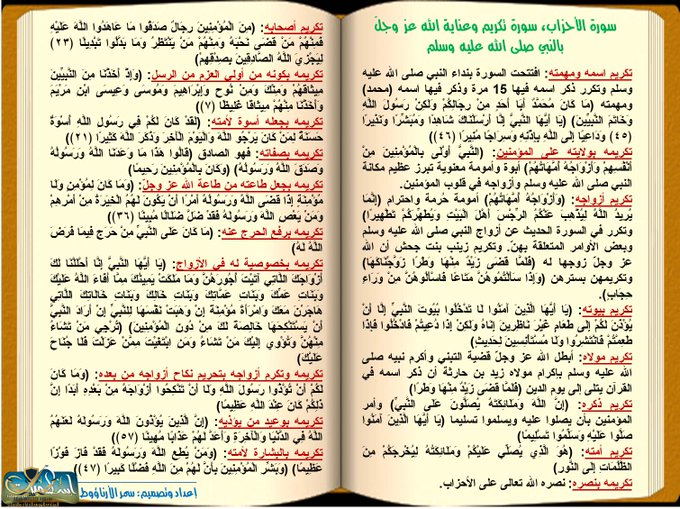 سورة الأحزاب، سورة تكريم وعناية الله عز وجل
بالنبي صلى الله عليه وسلم
تكريم اسمه ومهمته: افتتحت السورة بنداء النبي صلى الله عليه
وسلم وتكرر ذكر اسمه فيها 15 مرة وذكر فيها اسمه (محمد)
ومهمته (مَا كَانَ مُحَمَّدٌ أَبَا أَحَدٍ مِنْ رِجَالِكُمْ وَلَكِنْ رَسُولَ اللَّهِ
وَخَاتَمَ النَّبِيِّينَ) (يَا أَيُّهَا النَّبِيُّ إِنَّا أَرْسَلْنَاكَ شَاهِدًا وَمُبَشِّرًا وَنَذِيرًا
(٤٥) وَدَاعِيًا إِلَى اللَّهِ بِإِذْنِهِ وَسِرَاجًا مُنِيرًا (٤٦))
تكريمه بولايته على المؤمنين: (النَّبِيُّ أَوْلَى بِالْمُؤْمِنِينَ مِنْ
أَنْفُسِهِمْ وَأَزْوَاجُهُ أُمَّهَاتُهُمْ) أبوة وأمومة معنوية تبرز عظيم مكانة
النبي صلى الله عليه وسلم وأزواجه في قلوب المؤمنين.
تكريم أزواجه: (وَأَزْوَاجُهُ أُمَّهَاتُهُمْ) أمومة حرمة واحترام (إِنَّمَا
يُرِيدُ اللَّهُ لِيُذْهِبَ عَنْكُمُ الرِّجْسَ أَهْلَ الْبَيْتِ وَيُطَهِّرَكُمْ تَطْهِيرًا)
وتكرر في السورة الحديث عن أزواج النبي صلى الله عليه وسلم
وبعض الأوامر المتعلقة بهنّ. وتكريم زينب بنت جحش أن الله
عز وجلّ زوجها له (فَلَمَّا قَضَى زَيْدٌ مِنْهَا وَطَرًا زَوَّجْنَاكَهَا)
وتكريمهن بسترهن (وَإِذَا سَأَلْتُمُوهُنَّ مَتَاعًا فَاسْأَلُوهُنَّ مِنْ وَرَاءِ
حِجَابٍ)
تكريم بيوته: (يَا أَيُّهَا الَّذِينَ آمَنُوا لَا تَدْخُلُوا بُيُوتَ النَّبِيِّ إِلَّا أَنْ
يُؤْذَنَ لَكُمْ إِلَى طَعَامٍ غَيْرَ نَاظِرِينَ إِنَاهُ وَلَكِنْ إِذَا دُعِيتُمْ فَادْخُلُوا فَإِذَا
طَعِمْتُمْ فَانْتَشِرُوا وَلَا مُسْتَأْنِسِينَ لِحَدِيثٍ)
تكريم مولاه: أبطل الله عز وجلّ قضية التبني وأكرم نبيه صلى
الله عليه وسلم بإكرام مولاه زيد بن حارثة أن ذكر اسمه في
القرآن يتلى إلى يوم الدين (فَلَمَّا قَضَى زَيْدٌ مِنْهَا وَطَرًا)
تكريم ذكره: (إِنَّ اللَّهَ وَمَلَائِكَتَهُ يُصَلُّونَ عَلَى النَّبِيِّ) وأمر
المؤمنين بأن يصلوا عليه ويسلموا تسليما (يَا أَيُّهَا الَّذِينَ آمَنُوا
صَلُّوا عَلَيْهِ وَسَلِّمُوا تَسْلِيمًا)
تكريم أمته: (هُوَ الَّذِي يُصَلِّي عَلَيْكُمْ وَمَلَائِكَتُهُ لِيُخْرِجَكُمْ مِنَ
الظُّلُمَاتِ إِلَى النُّورِ)
تكريمه بنصره: نصره الله تعالى على الأحزاب.
تكريم أصحابه: (مِنَ الْمُؤْمِنِينَ رِجَالٌ صَدَقُوا مَا عَاهَدُوا اللَّهَ عَلَيْهِ
فَمِنْهُمْ مَنْ قَضَى نَحْبَهُ وَمِنْهُمْ مَنْ يَنْتَظِرُ وَمَا بَدَّلُوا تَبْدِيلًا (٢٣)
لِيَجْزِيَ اللَّهُ الصَّادِقِينَ بِصِدْقِهِمْ)
تكريمه بكونه من أولي العزم من الرسل: (وَإِذْ أَخَذْنَا مِنَ النَّبِيِّينَ
مِيثَاقَهُمْ وَمِنْكَ وَمِنْ نُوحٍ وَإِبْرَاهِيمَ وَمُوسَى وَعِيسَى ابْنِ مَرْيَمَ
وَأَخَذْنَا مِنْهُمْ مِيثَاقًا غَلِيظًا (٧))
تكريمه بجعله أسوة لأمته: (لَقَدْ كَانَ لَكُمْ فِي رَسُولِ اللَّهِ أُسْوَةٌ
حَسَنَةٌ لِمَنْ كَانَ يَرْجُو اللَّهَ وَالْيَوْمَ الْآخِرَ وَذَكَرَ اللَّهَ كَثِيرًا (٢١))
تكريمه بصفاته: فهو الصادق (قَالُوا هَذَا مَا وَعَدَنَا اللَّهُ وَرَسُولُهُ
وَصَدَقَ اللَّهُ وَرَسُولُهُ) (وَكَانَ بِالْمُؤْمِنِينَ رَحِيمًا)
تكريمه بجعل طاعته من طاعة الله عز وجلّ: (وَمَا كَانَ لِمُؤْمِنٍ وَلَا
مُؤْمِنَةٍ إِذَا قَضَى اللَّهُ وَرَسُولُهُ أَمْرًا أَنْ يَكُونَ لَهُمُ الْخِيَرَةُ مِنْ أَمْرِهِمْ
وَمَنْ يَعْصِ اللَّهَ وَرَسُولَهُ فَقَدْ ضَلَّ ضَلَالًا مُبِينًا (٣٦))
تكريمه برفع الحرج عنه: (مَا كَانَ عَلَى النَّبِيِّ مِنْ حَرَجٍ فِيمَا فَرَضَ
اللَّهُ لَهُ)
تكريمه بخصوصية له في الأزواج: (يَا أَيُّهَا النَّبِيُّ إِنَّا أَحْلَلْنَا لَكَ
أَزْوَاجَكَ اللَّاتِي آتَيْتَ أُجُورَهُنَّ وَمَا مَلَكَتْ يَمِينُكَ مِمَّا أَفَاءَ اللَّهُ عَلَيْكَ
وَبَنَاتِ عَمِّكَ وَبَنَاتِ عَمَّاتِكَ وَبَنَاتِ خَالِكَ وَبَنَاتِ خَالَاتِكَ اللَّاتِي
هَاجَرْنَ مَعَكَ وَامْرَأَةً مُؤْمِنَةً إِنْ وَهَبَتْ نَفْسَهَا لِلنَّبِيِّ إِنْ أَرَادَ النَّبِيُّ
أَنْ يَسْتَنْكِحَهَا خَالِصَةً لَكَ مِنْ دُونِ الْمُؤْمِنِينَ) (تُرْجِي مَنْ تَشَاءُ
مِنْهُنَّ وَتُؤْوِي إِلَيْكَ مَنْ تَشَاءُ وَمَنِ ابْتَغَيْتَ مِمَّنْ عَزَلْتَ فَلَا جُنَاحَ
عَلَيْكَ)
تكريمه وتكرم أزواجه بتحريم نكاح أزواجه من بعده: (وَمَا كَانَ
لَكُمْ أَنْ تُؤْذُوا رَسُولَ اللَّهِ وَلَا أَنْ تَنْكِحُوا أَزْوَاجَهُ مِنْ بَعْدِهِ أَبَدًا إِنَّ
ذَلِكُمْ كَانَ عِنْدَ اللَّهِ عَظِيمًا)
تكريمه بوعيد من يؤذيه: (إِنَّ الَّذِينَ يُؤْذُونَ اللَّهَ وَرَسُولَهُ لَعَنَهُمُ
اللَّهُ فِي الدُّنْيَا وَالْآخِرَةِ وَأَعَدَّ لَهُمْ عَذَابًا مُهِينًا (٥٧))
تكريمه بالبشارة لأمته: (وَمَنْ يُطِعِ اللَّهَ وَرَسُولَهُ فَقَدْ فَازَ فَوْزًا
عَظِيمًا) (وَبَشِّرِ الْمُؤْمِنِينَ بِأَنَّ لَهُمْ مِنَ اللَّهِ فَضْلًا كَبِيرًا (٤٧))
إعداد وتصميم: سمر الأرناؤوط